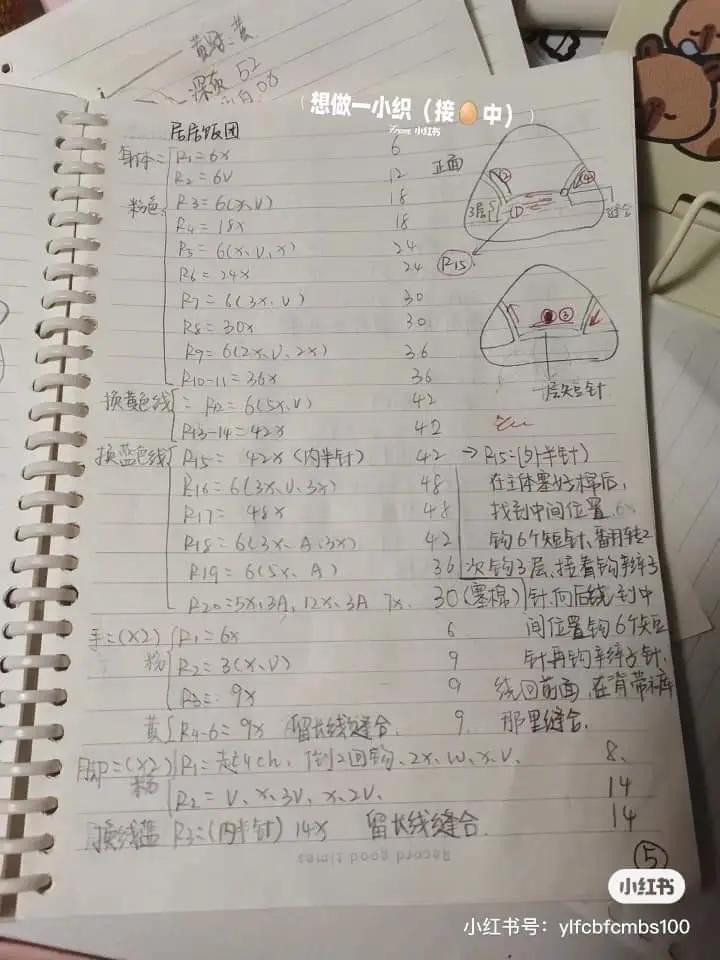 黄
深灰 52
08
想做一小织（接🥚中）
小红书
居居饭团
身体= R1=6x 6
R2=6V 12
粉色 R3=6(x、V) 18
R4=18x 18
R5=6(x、V、x) 24
R6=24x 24
R7=6(3x、V) 30
R8=30x 30
R9=6(2x、V、2x) 36
R10-11=36x 36
换黄色线 R12=6(5x、V) 42
R13-14=42x 42
换蓝色线 R15= 42x (内半针) 42
R16=6(3x、V、3x) 48
R17= 48x 48
R18=6(3x、A、3x) 42
R19=6(5x、A) 36
R20=5x、3A、12x、3A 7x、 30(塞棉)
正面
② ④
3层 ① 缝合
R15
③
一层短针
→R15=(外半针)
在主体塞好棉后,
找到中间位置
钩6个短针,翻转2
次钩3层,接着钩辫子
针,向后绕到中
间位置钩6个短
针再钩辫子针,
绕回前面,在背带裤
那里缝合.
手=(x2) R1=6x 6
粉 R2=3(x、V) 9
R3= 9x 9
黄 R4-6=9x 留长线缝合. 9
脚=(x2) R1=起4ch、倒2回钩、2x、W、x、V、 8、
粉 R2=V、x、3V、x、2V、 14
换线蓝 R3=(内半针) 14x 留长线缝合. 14
Record good times
⑤
小红书
小红书号：ylfcbfcmbs100